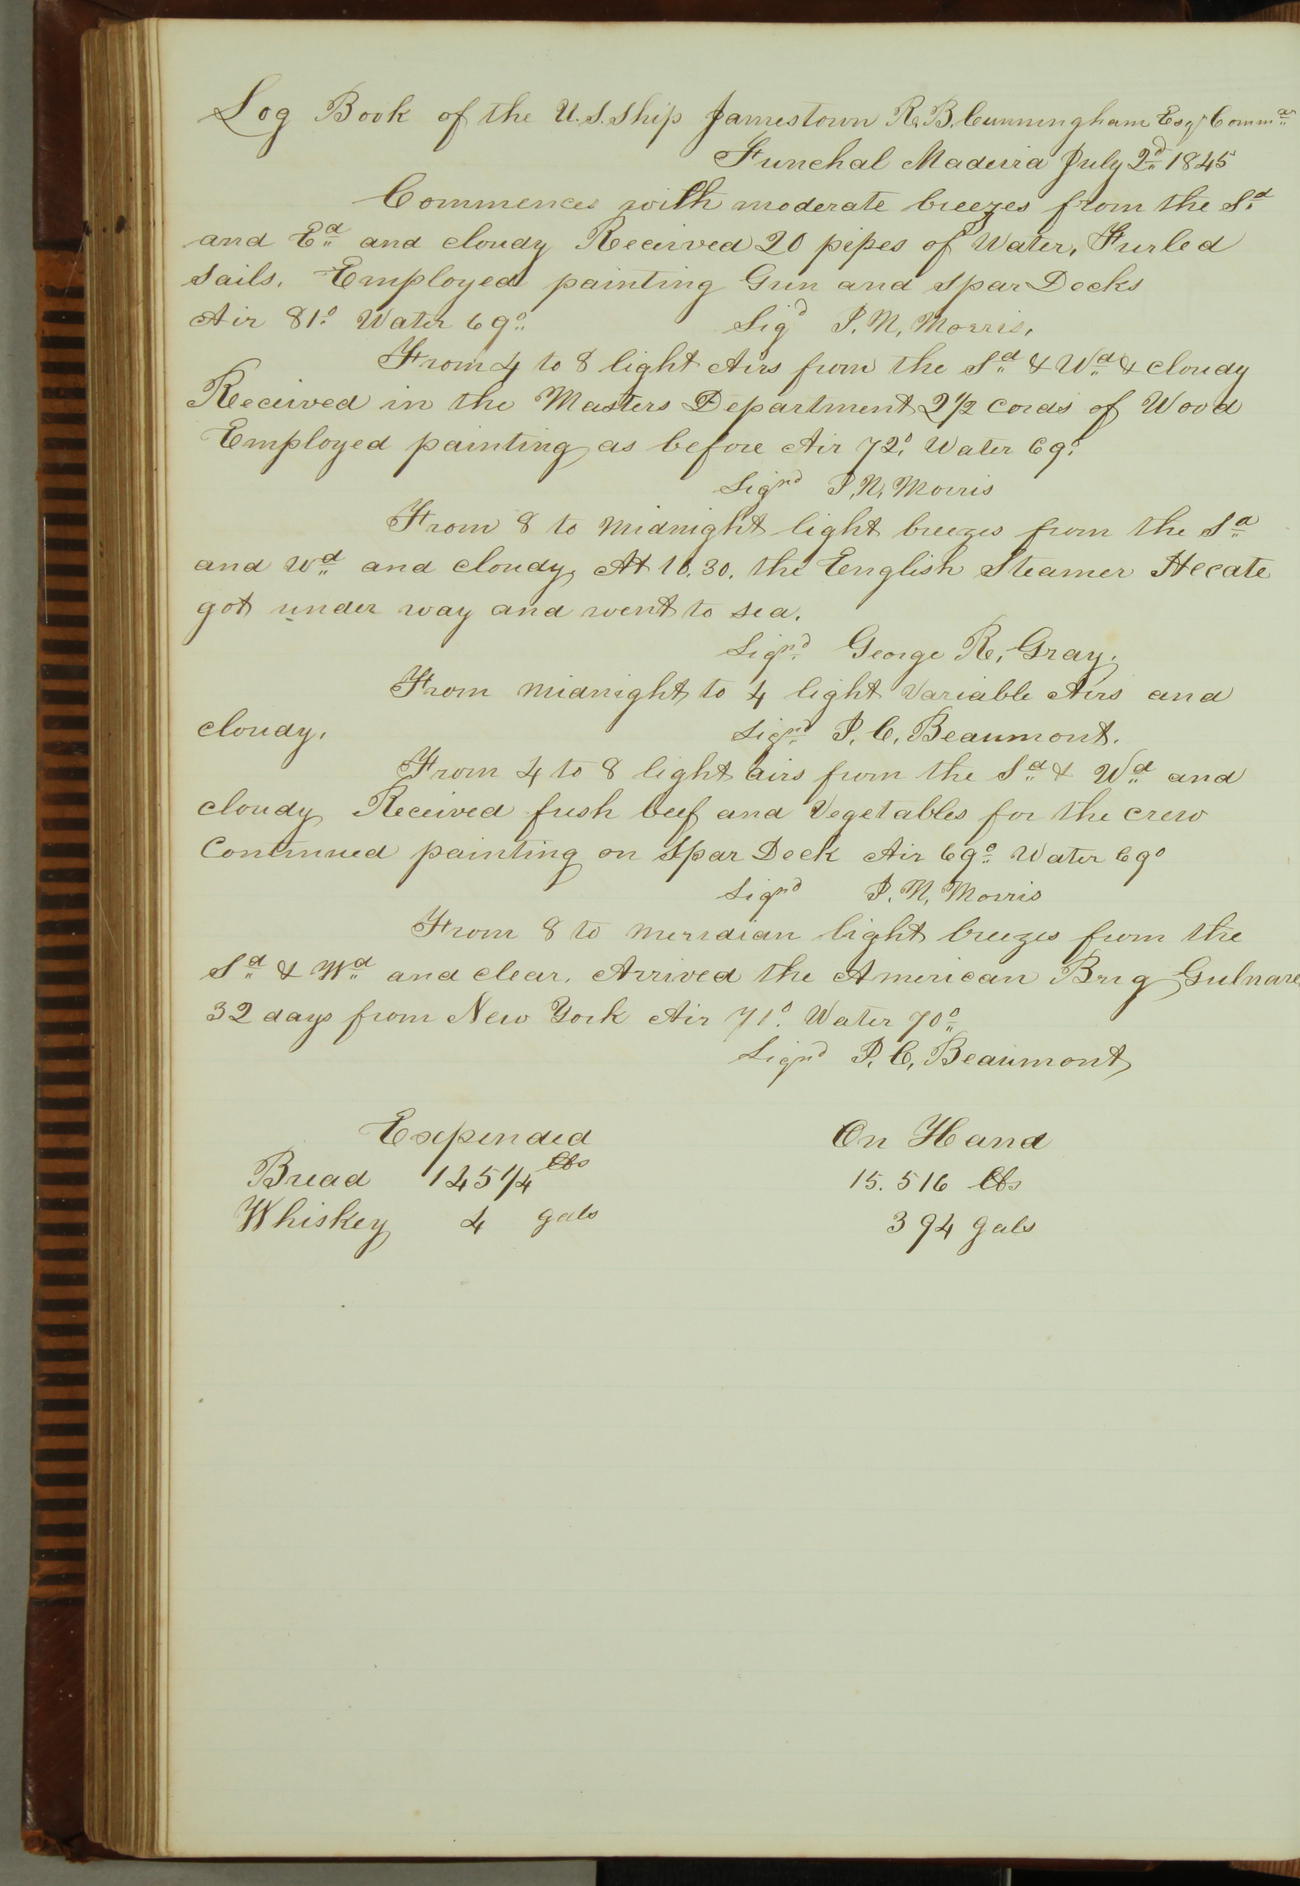 Log Book of the U.S. Ship Jamestown R.B. Cunningham Esqr Commdr
Funchal Madeira July 2d 1845
Commences with moderate breezes from the Sd
and Ed and cloudy Received 20 pipes of Water, Furled
Sails. Employed painting Gun and Spar Decks
Air 81° Water 69° Sigd P. N. Morris.
From 4 to 8 light Airs from the Sd & Wd & cloudy
Received in the Masters Department 2 1/2 cords of Wood
Employed painting as before Air 72° Water 69°
Signd P. N. Morris
From 8 to Midnight light breezes from the Sd
and Wd and cloudy, At 10.30. the English Steamer Hecate
got under way and went to sea.
Signd George R. Gray.
From midnight to 4 light Variable Airs and
cloudy. Signd P. C. Beaumont.
From 4 to 8 light airs from the Sd & Wd and
cloudy Received fresh beef and Vegetables for the crew
Continued painting on Spar Deck Air 69° Water 69°
Signd P. N. Morris
From 8 to meridian light breezes from the
Sd & Wd and clear. Arrived the American Brig Gulnare
32 days from New York Air 71° Water 70°
Signd P. C. Beaumont
Expended On Hand
Bread 125 1/4 lbs 15.516 lbs
Whiskey 4 gals 394 gals